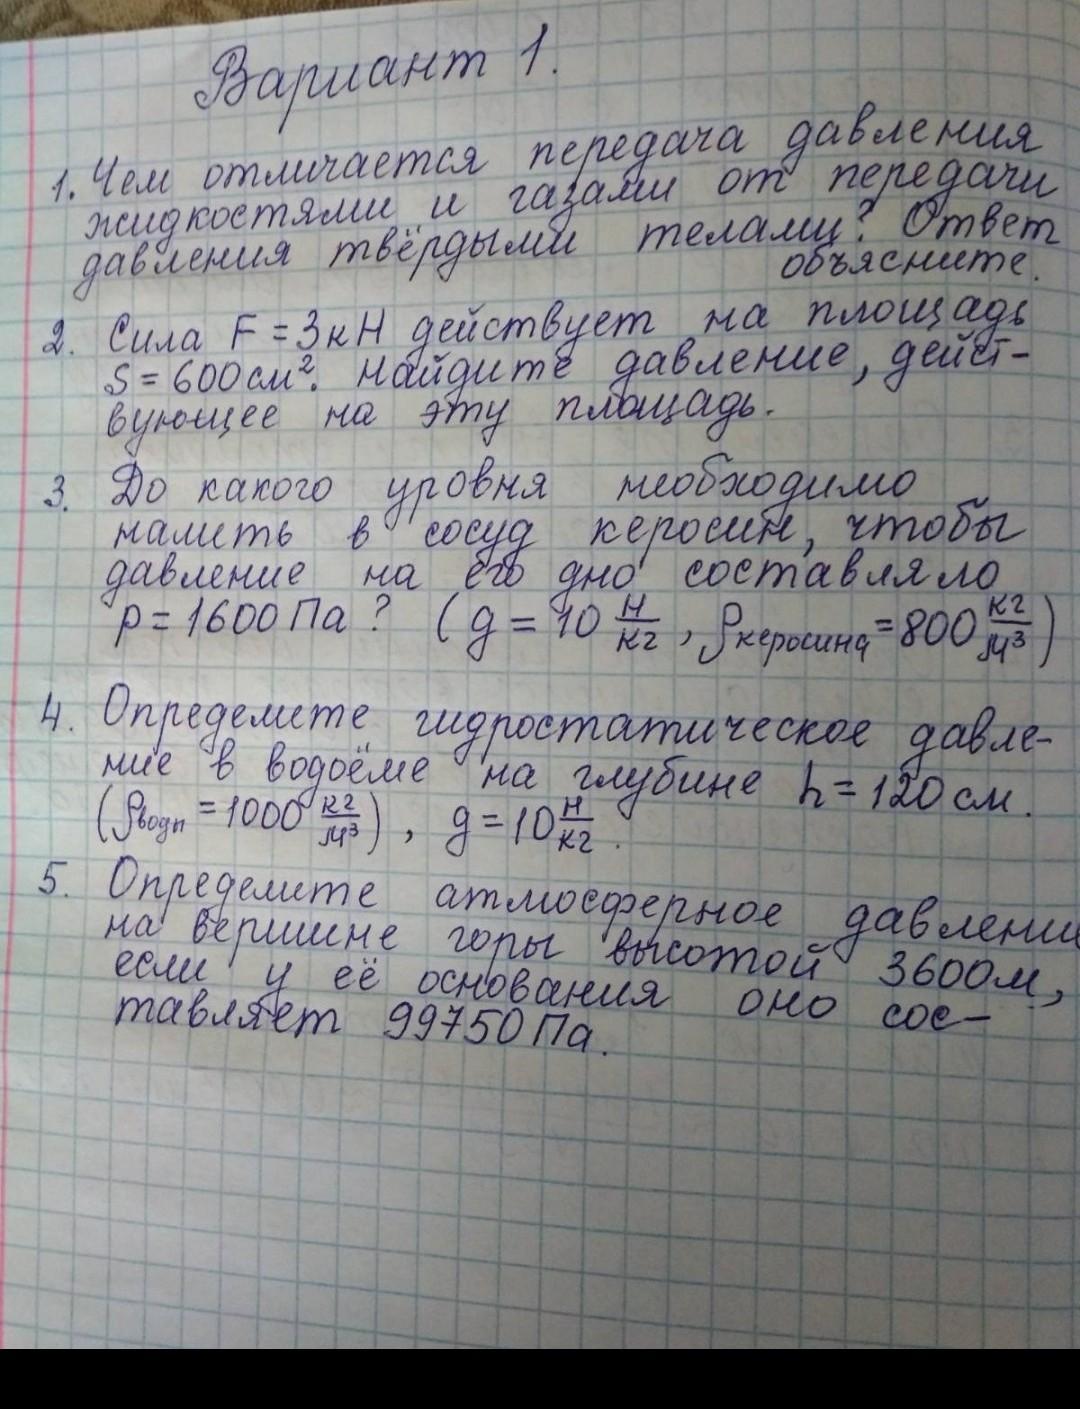 Вариант 1.
1. Чем отличается передача давления
жидкостями и газами от передачи
давления твёрдыми телами? Ответ
объясните.
2. Сила F = 3 кН действует на площадь
S = 600 см². Найдите давление, дейст-
вующее на эту площадь.
3. До какого уровня необходимо
налить в сосуд керосин, чтобы
давление на его дно составляло
p = 1600 Па? (g = 10 Н/кг, ρкеросина = 800 кг/м³)
4. Определите гидростатическое давле-
ние в водоёме на глубине h = 120 см.
(ρводы = 1000 кг/м³), g = 10 Н/кг.
5. Определите атмосферное давление
на вершине горы высотой 3600м,
если у её основания оно сос-
тавляет 99750 Па.